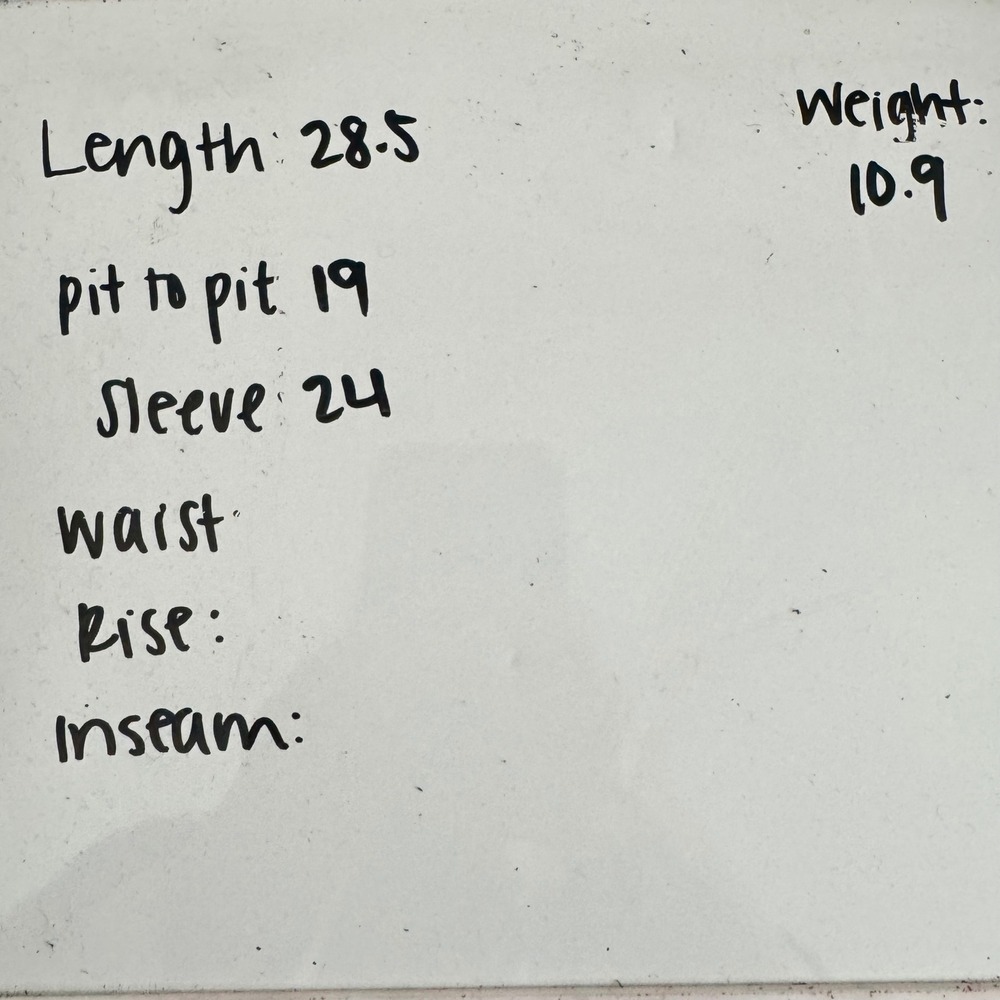 Length: 28.5
Weight:
10.9
pit to pit 19
Sleeve: 24
waist
Rise:
Inseam: